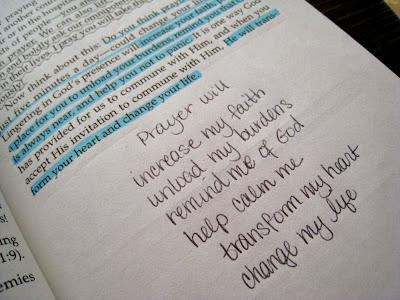 praying
ds of people
and boldly ask
lives! I pray you will
Now think about this: Do you think
just five minutes a day—could change your
Lingering in God's presence will increase your faith,
a place for you to unload your burdens, remind you that
is always near and help you not to panic. It is one way God
has provided for us to commune with Him, and when
accept His invitation to commune with Him, He will trans-
form your heart and change your life.
Prayer will
increase my faith
unload my burdens
remind me of God
help calm me
transform my heart
change my life
ing
1:9).
emies